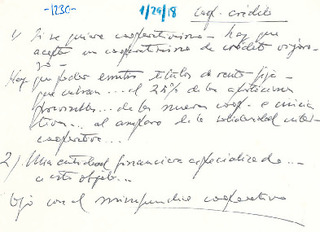 -1230-
1/29/18
Coop. crédito
1) Si se quiere cooperativismo - hay que
aceptar un cooperativismo de crédito vigoro-
so -
Hay que poder emitir títulos de renta fija -
que cubran ... el 25% de las aportaciones
previsibles ... de las nuevas coop. e inicia-
tivas ... al amparo de la solidaridad inter-
cooperativa ...
2) Una entidad financiera especializada ...
a este objeto ...
Ojo con el minifundio cooperativo